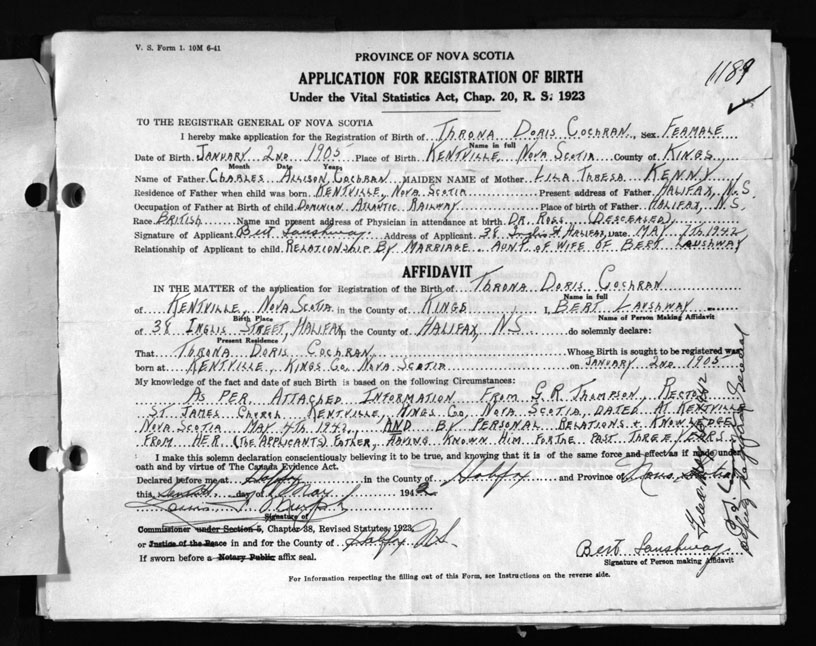 V. S. Form 1. 10M 6-41
PROVINCE OF NOVA SCOTIA
1189
APPLICATION FOR REGISTRATION OF BIRTH
Under the Vital Statistics Act, Chap. 20, R. S. 1923
TO THE REGISTRAR GENERAL OF NOVA SCOTIA
I hereby make application for the Registration of Birth of THRONA DORIS COCHRAN Sex FEAMALE
Name in full
Date of Birth JANUARY 2ND 1905 Place of Birth KENTVILLE NOVA SCOTIA County of KINGS
Month Date Years
Name of Father CHARLES ALLISON COCHRAN MAIDEN NAME of Mother LILA THRESA KENNY
Residence of Father when child was born KENTVILLE, NOVA SCOTIA Present address of Father HALIFAX, N.S.
Occupation of Father at Birth of child DOMINION ATLANTIC RAILWAY Place of birth of Father HALIFAX, N.S.
Race BRITISH Name and present address of Physician in attendance at birth DR. ROSS (DESCEASED)
Signature of Applicant Bert Laushway Address of Applicant 38 Inglis St HALIFAX, Date MAY 7TH 1942
Relationship of Applicant to child RELATIONSHIP BY MARRIAGE AUNT OF WIFE OF BERT LAUSHWAY
AFFIDAVIT
IN THE MATTER of the application for Registration of the Birth of THRONA DORIS COCHRAN
Name in full
of KENTVILLE, NOVA SCOTIA in the County of KINGS I, BERT LAUSHWAY
Birth Place Name of Person Making Affidavit
of 38 INGLIS STREET, HALIFAX in the County of HALIFAX, N.S. do solemnly declare:
Present Residence
That THRONA DORIS COCHRAN Whose Birth is sought to be registered was
born at KENTVILLE, KINGS CO, NOVA SCOTIA on JANUARY 2ND 1905
My knowledge of the fact and date of such Birth is based on the following Circumstances:
AS PER ATTACHED INFORMATION FROM G.R. THOMPSON, RECTOR
ST JAMES CHURCH, KENTVILLE, KINGS CO, NOVA SCOTIA, DATED AT KENTVILLE
NOVA SCOTIA MAY 4TH 1942, AND BY PERSONAL RELATIONS & KNOWLEDGE
FROM HER (THE APPLICANTS) FATHER, HAVING KNOWN HIM FOR THE PAST THREE YEARS.
I make this solemn declaration conscientiously believing it to be true, and knowing that it is of the same force and effect as if made under
oath and by virtue of The Canada Evidence Act.
Declared before me at Halifax in the County of Halifax and Province of Nova Scotia
this Seventh day of May 1942
Signature of
Commissioner under Section 5, Chapter 38, Revised Statutes, 1923
or Justice of the Peace in and for the County of Halifax N.S.
If sworn before a Notary Public affix seal.
Bert Laushway
Signature of Person making Affidavit
For Information respecting the filling out of this Form, see Instructions on the reverse side.